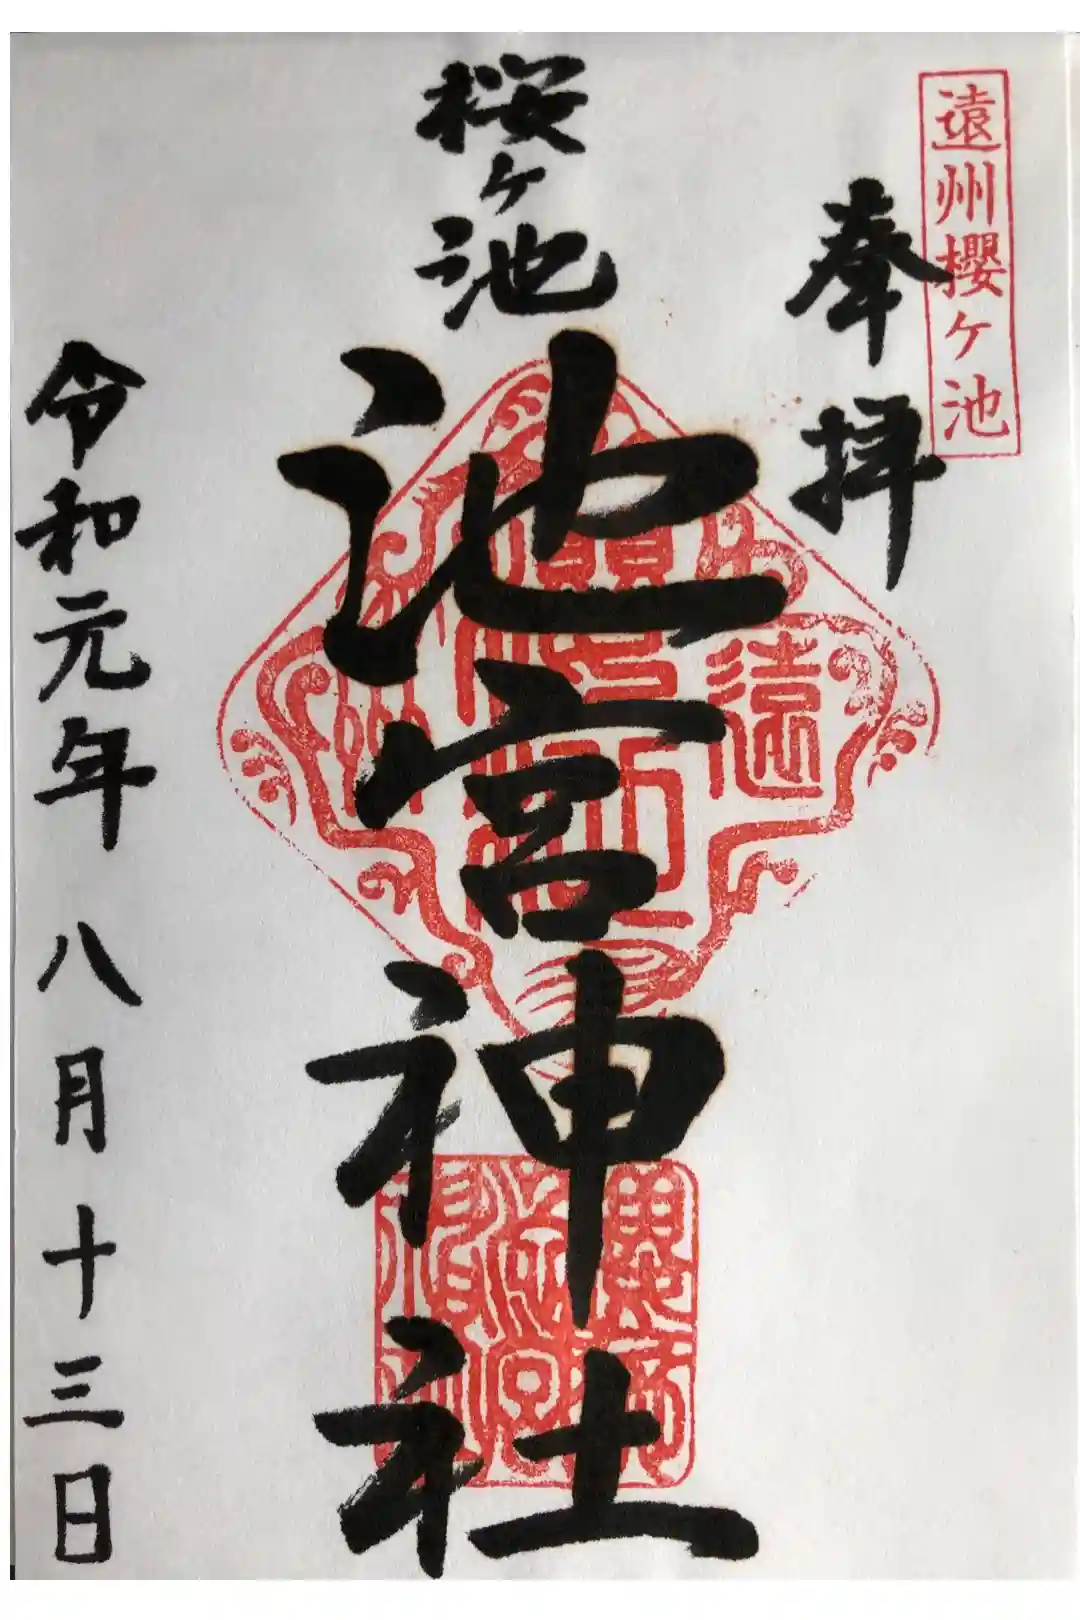 遠州櫻ヶ池
奉拝
桜ヶ池
池宮神社
令和元年八月十三日